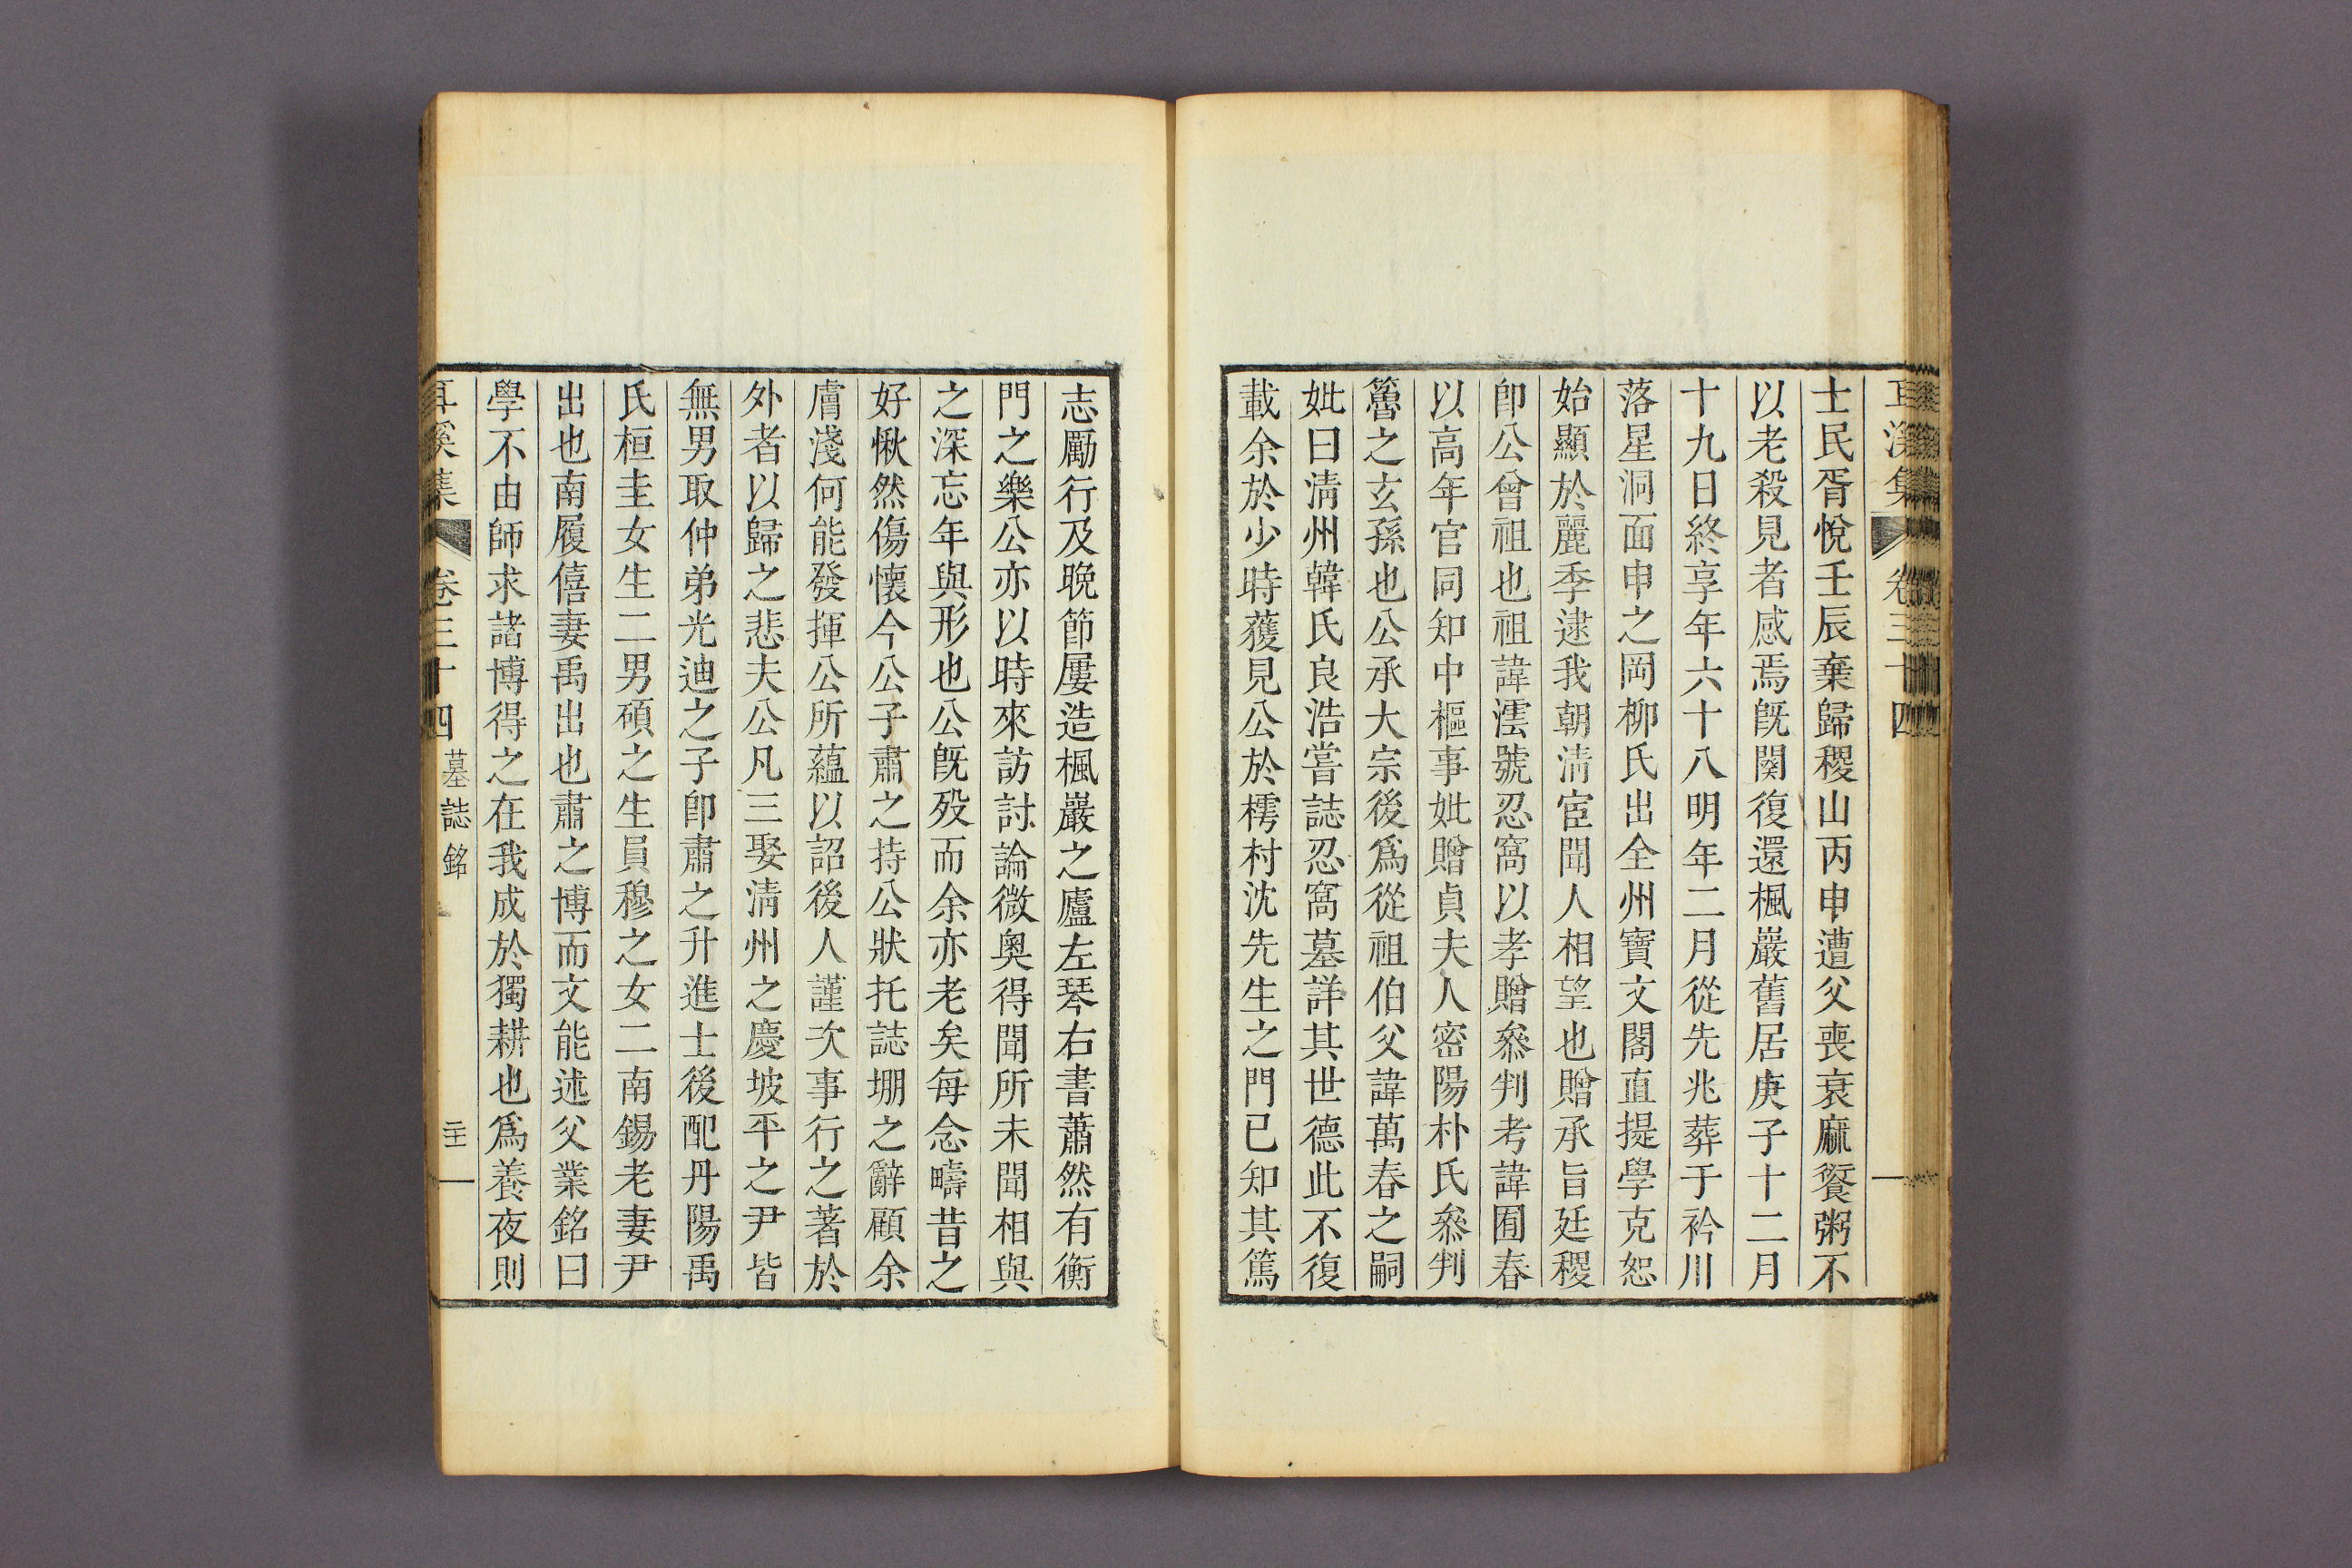 耳溪集 卷三十四
士民胥悅壬辰棄歸稷山丙申遭父喪衰麻饘粥不
以老殺見者感焉旣闋復還楓巖舊居庚子十二月
十九日終享年六十八明年二月從先兆葬于衿川
落星洞面申之岡柳氏出全州寶文閣直提學克恕
始顯於麗季逮我朝淸宦聞人相望也贈承旨廷稷
卽公曾祖也祖諱澐號忍窩以孝贈叅判考諱囿春
以高年官同知中樞事妣贈貞夫人密陽朴氏叅判
簪之玄孫也公承大宗後爲從祖伯父諱萬春之嗣
妣曰淸州韓氏良浩嘗誌忍窩墓詳其世德此不復
載余於少時獲見公於樗村沈先生之門已知其篤
志勵行及晚節屢造楓巖之廬左琴右書蕭然有衡
門之樂公亦以時來訪討論微奧得聞所未聞相與
之深忘年與形也公旣歿而余亦老矣每念疇昔之
好愀然傷懷今公子肅之持公狀托誌堋之辭顧余
膚淺何能發揮公所蘊以詔後人謹次事行之著於
外者以歸之悲夫公凡三娶淸州之慶坡平之尹皆
無男取仲弟光迪之子卽肅之升進士後配丹陽禹
氏桓圭女生二男碩之生員穆之女二南錫老妻尹
出也南履僖妻禹出也肅之博而文能述父業銘曰
學不由師求諸博得之在我成於獨耕也爲養夜則
耳溪集 卷三十四 墓誌銘